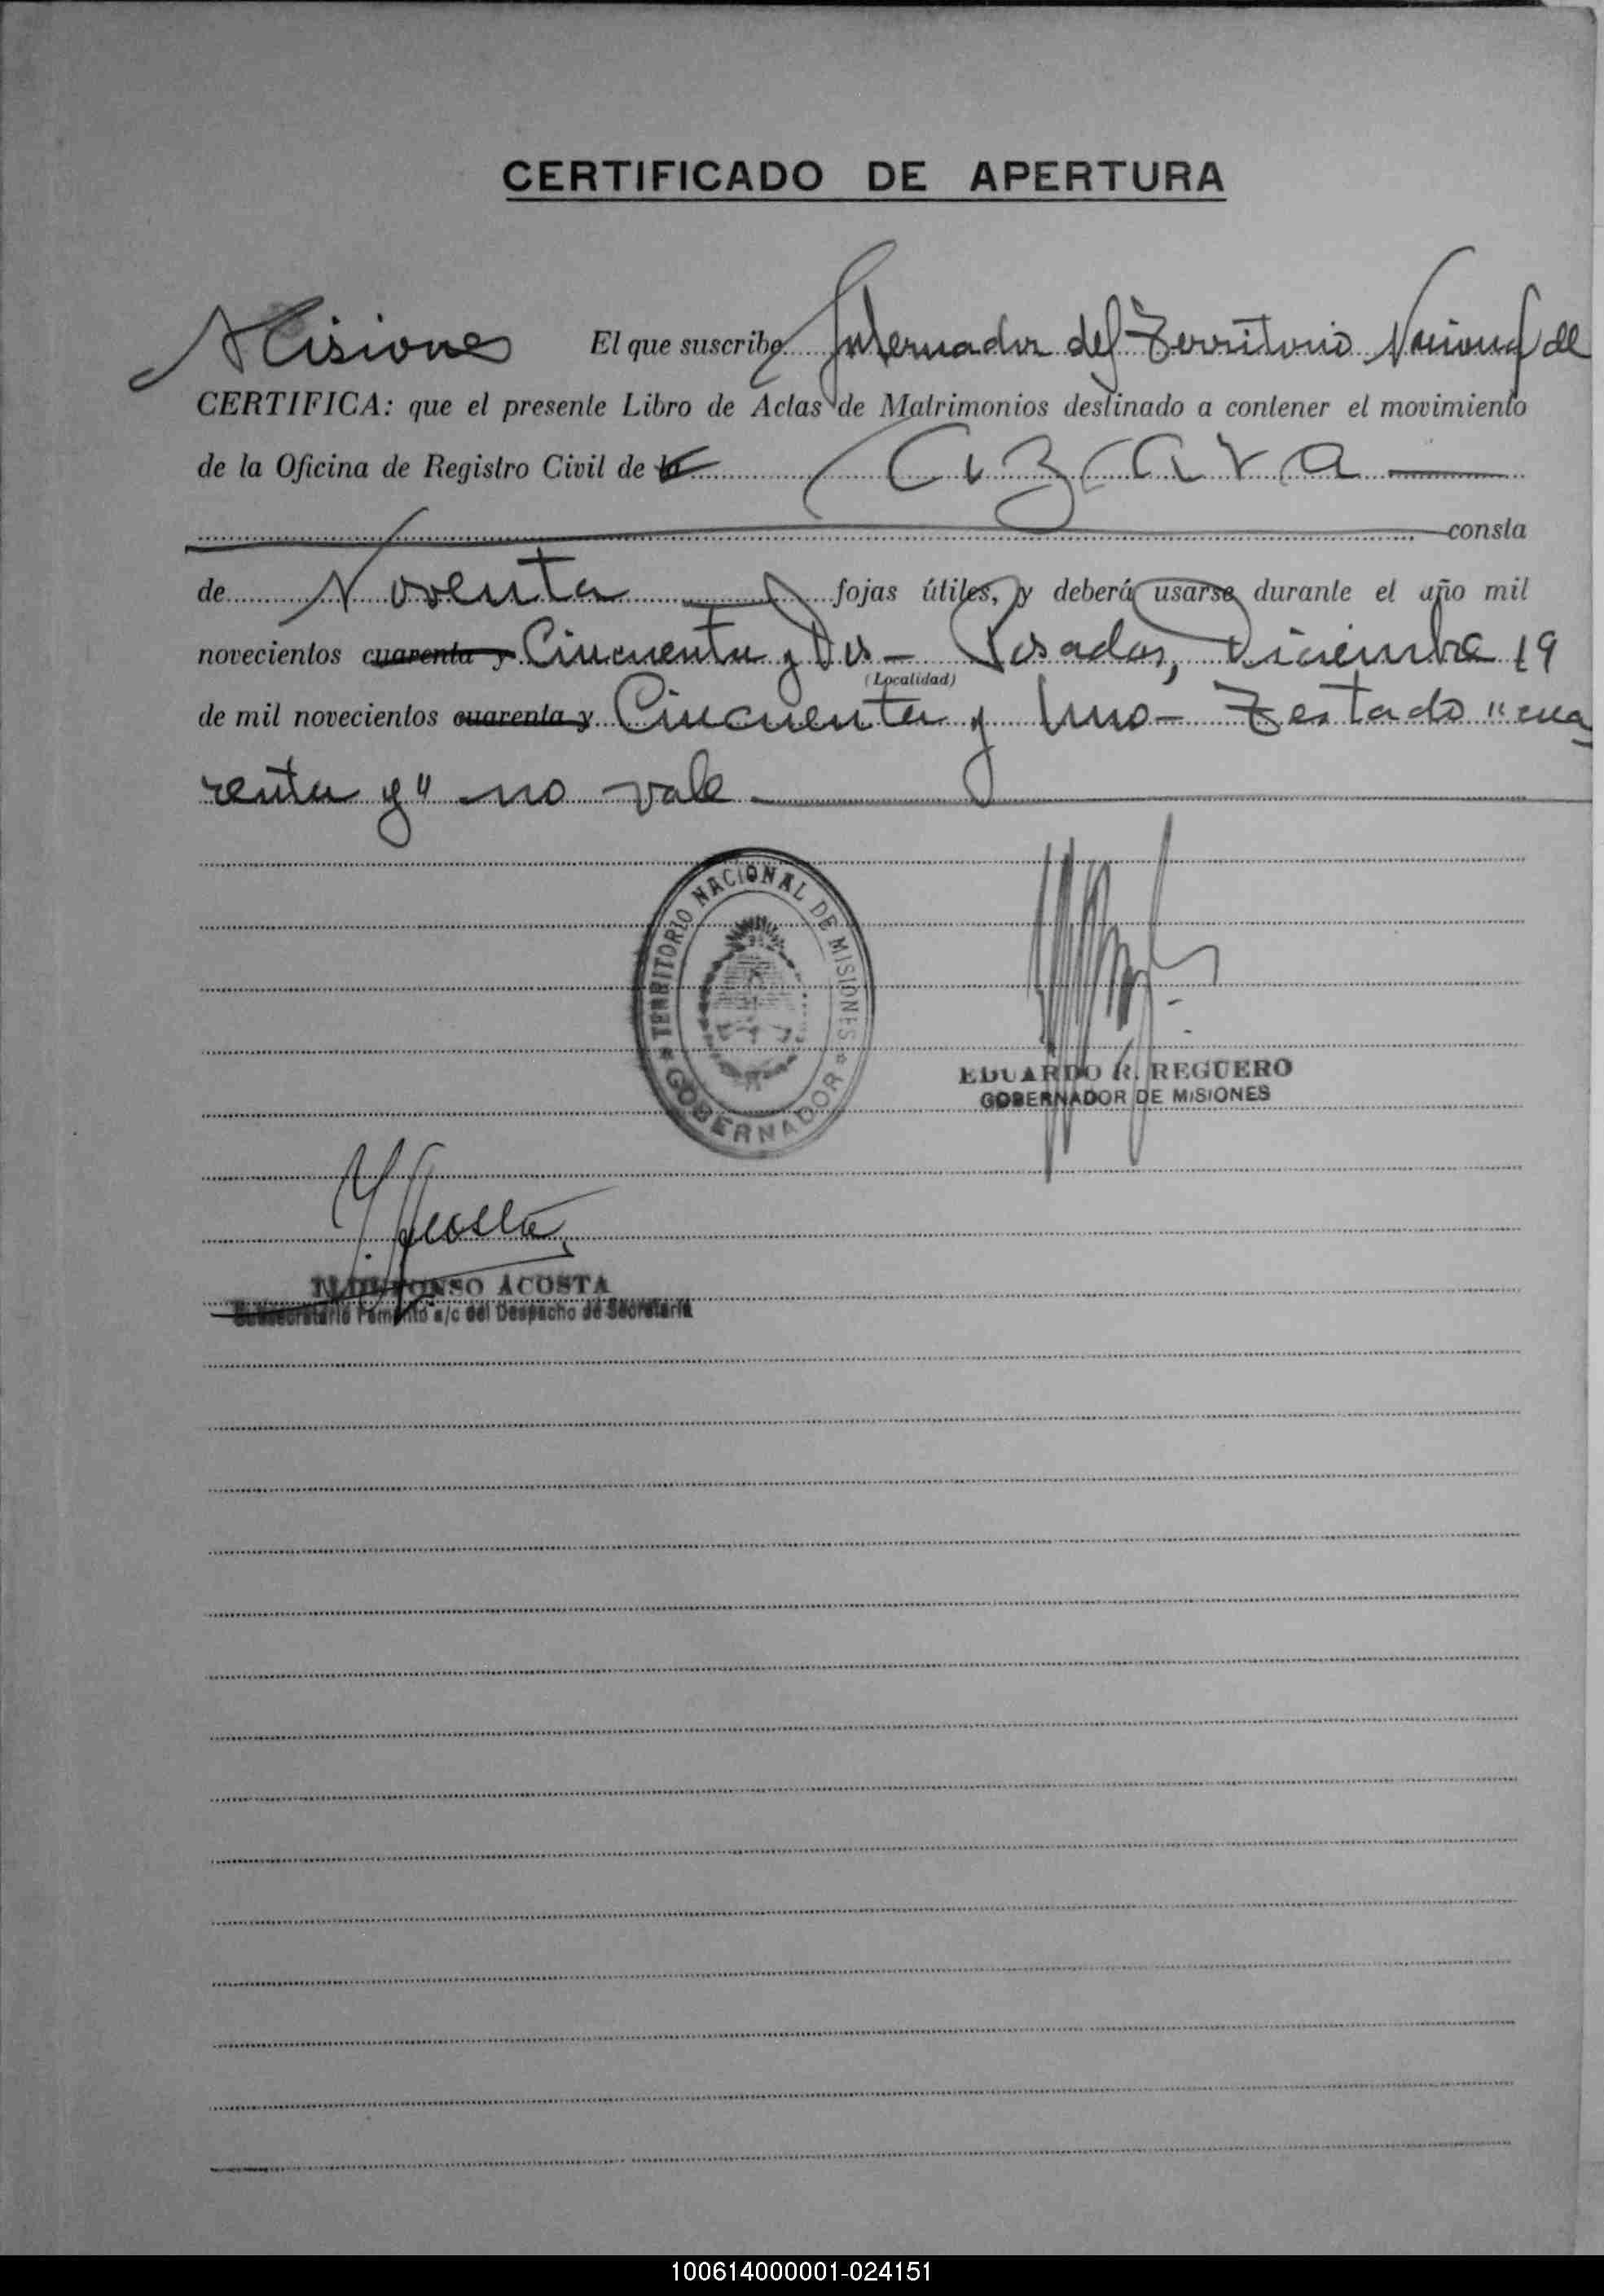 CERTIFICADO DE APERTURA
El que suscribe Gobernador del Territorio Nacional de
Misiones
CERTIFICA: que el presente Libro de Actas de Matrimonios destinado a contener el movimiento
de la Oficina de Registro Civil de la Azara
consta
de Noventa fojas útiles, y deberá usarse durante el año mil
novecientos cuarenta y Cincuenta y Dos - Posadas, Diciembre 19
(Localidad)
de mil novecientos cuarenta y Cincuenta y Uno - Testado "cua
renta y" no vale
TERRITORIO NACIONAL DE MISIONES
GOBERNADOR
EDUARDO R. REGUERO
GOBERNADOR DE MISIONES
I. Acosta
ILDEFONSO ACOSTA
Subsecretario Fomento a/c del Despacho de Secretaría
100614000001-024151